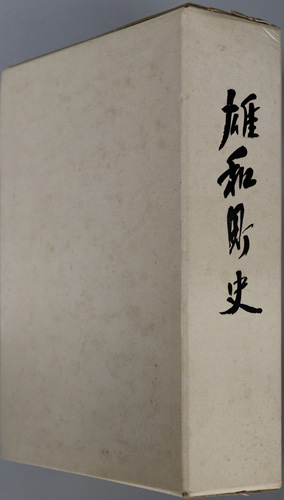 雄和町史